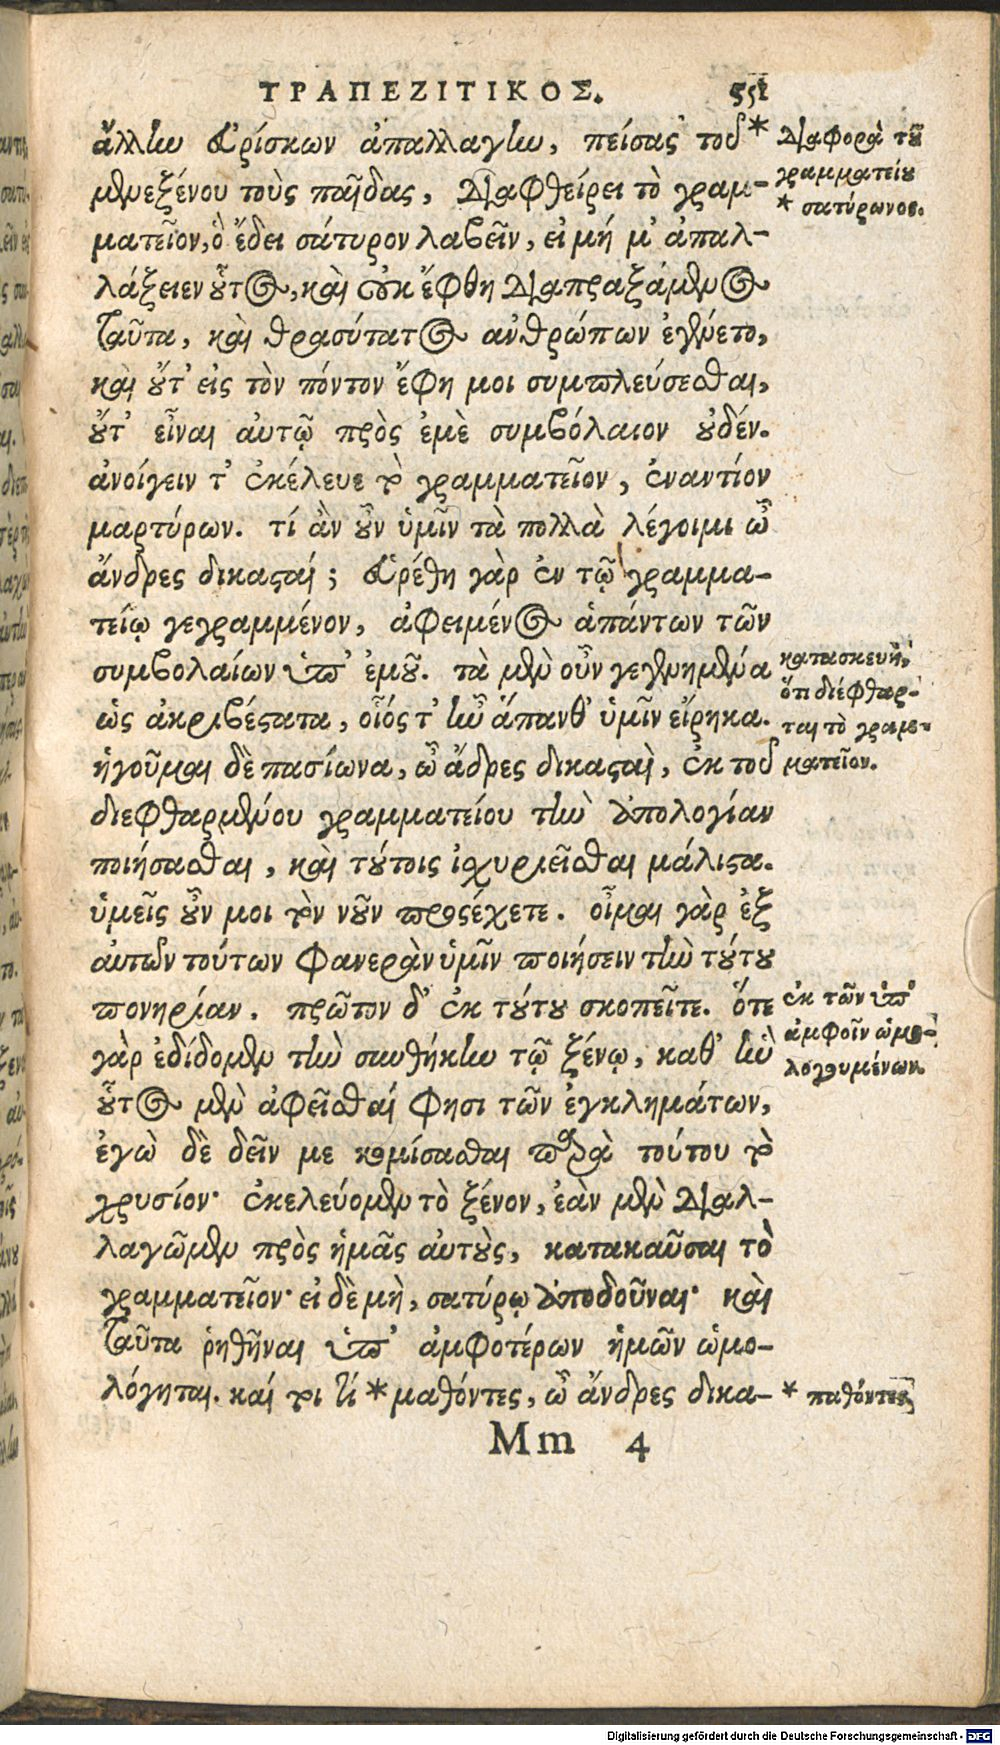 ΤΡΑΠΕΖΙΤΙΚΟΣ. 551
ἄλλην εὑρίσκων ἀπαλλαγὴν, πείσας τοῦ *
μενεξένου τοὺς παῖδας, διαφθείρει τὸ γραμ-
ματεῖον, ὃ ἔδει σάτυρον λαβεῖν, εἰ μή μ' ἀπαλ-
λάξειεν οὗτος, καὶ οὐκ ἔφθη διαπραξάμενος
ταῦτα, καὶ θρασύτατος ἀνθρώπων ἐγένετο,
καὶ οὔτ' εἰς τὸν πόντον ἔφη μοι συμπλεύσεσθαι,
οὔτ' εἶναι αὐτῷ πρὸς ἐμὲ συμβόλαιον οὐδέν.
ἀνοίγειν τ' ἐκέλευε τὸ γραμματεῖον, ἐναντίον
μαρτύρων. τί ἂν οὖν ὑμῖν τὰ πολλὰ λέγοιμι ὦ
ἄνδρες δικασταί; εὑρέθη γὰρ ἐν τῷ γραμμα-
τείῳ γεγραμμένον, ἀφειμένος ἁπάντων τῶν
συμβολαίων ὑπ' ἐμοῦ. τὰ μὲν οὖν γεγενημένα
ὡς ἀκριβέστατα, οἷός τ' ἦν ἅπανθ' ὑμῖν εἴρηκα.
ἡγοῦμαι δὲ πασίωνα, ὦ ἄδρες δικασταὶ, ἐκ τοῦ
διεφθαρμένου γραμματείου τὴν ἀπολογίαν
ποιήσασθαι, καὶ τούτοις ἰσχυριεῖσθαι μάλιστα.
ὑμεῖς οὖν μοι τὸν νοῦν προσέχετε. οἶμαι γὰρ ἐξ
αὐτῶν τούτων φανερὰν ὑμῖν ποιήσειν τὴν τούτου
πονηρίαν. πρῶτον δ' ἐκ τούτου σκοπεῖτε. ὅτε
γὰρ ἐδίδομεν τὴν συνθήκην τῷ ξένῳ, καθ' ἣν
οὗτος μὲν ἀφεῖσθαί φησι τῶν ἐγκλημάτων,
ἐγὼ δὲ δεῖν με κομίσασθαι παρὰ τούτου τὸ
χρυσίον· ἐκελεύομεν τὸ ξένον, ἐὰν μὲν διαλ-
λαγῶμεν πρὸς ἡμᾶς αὐτοὺς, κατακαῦσαι τὸ
γραμματεῖον· εἰ δὲ μὴ, σατύρῳ ἀποδοῦναι· καὶ
ταῦτα ῥηθῆναι ὑπ' ἀμφοτέρων ἡμῶν ὡμο-
λόγηται. καί τοι τί * μαθόντες, ὦ ἄνδρες δικα-
Mm 4
Διαφορὰ τοῦ
γραμματείου
* σατύρωνος.
κατασκευὴ,
ὅτι διέφθαρ-
ται τὸ γραμ-
ματεῖον.
ἐκ τῶν ὑπ'
ἀμφοῖν ὡμο-
λογουμένων.
* παθόντες
Digitalisierung gefördert durch die Deutsche Forschungsgemeinschaft - DFG